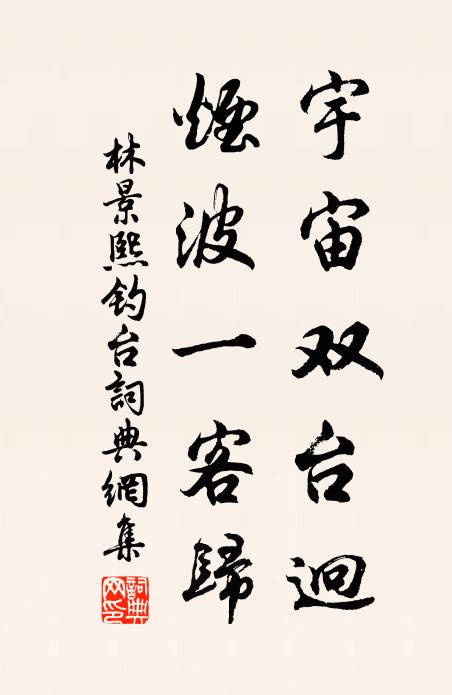 宇宙双台迥
煙波一客歸
林景熙钓台詞典網集
詞典网印